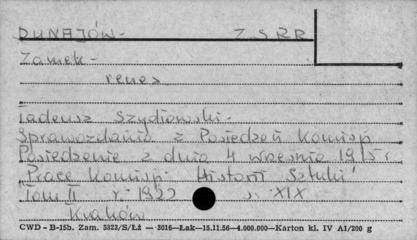 DUNAJÓW - Z.S.R.R
Zamek -
renes
Tadeusz Szydłowski -
Sprawozdania z Posiedzeń Komisji
Posiedzenie z dnia 4 września 1915 r.
"Prace Komisji Historii Sztuki"
Tom II r. 1922 s. XIX
Kraków
CWD - B-15b. Zam. 5323/S/Łż — 3016—Łak—15.11.56—4.000.000—Karton kl. IV A1/200 g